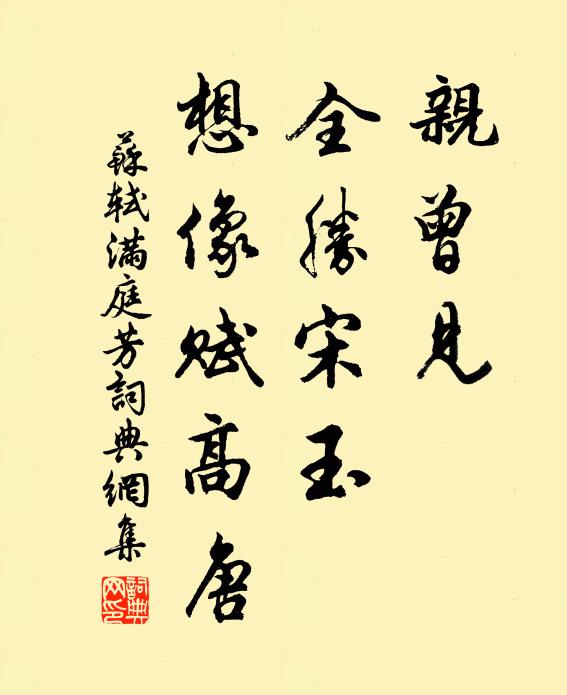 親曾見
全勝宋玉
想像賦高唐
蘇軾滿庭芳詞典網集
詞典网印